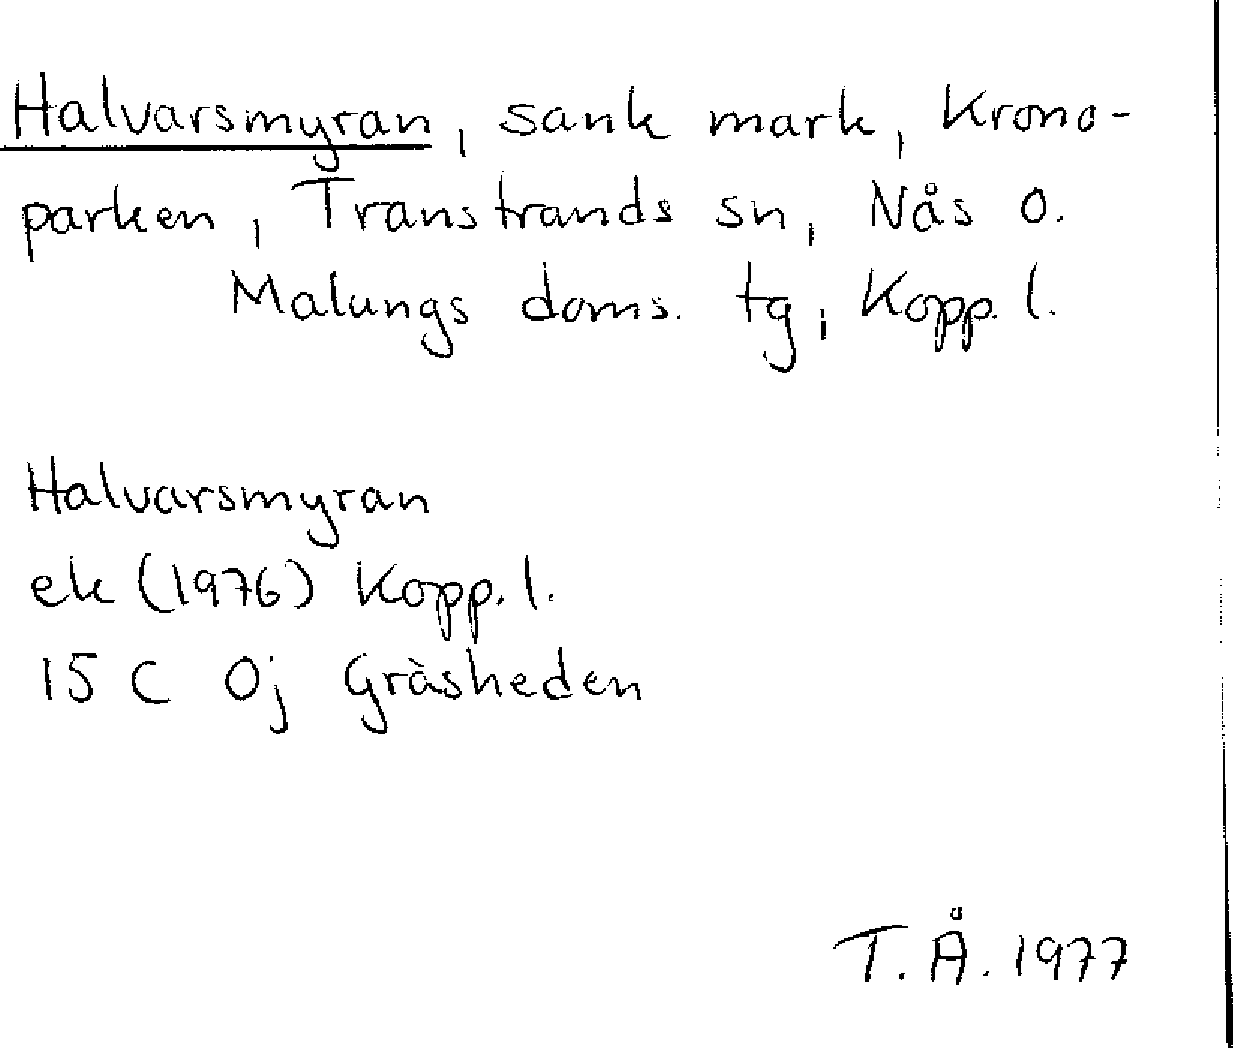 Halvarsmyran, sank mark, Krono-
parken, Transtrands sn, Nås o.
Malungs doms. tg, Kopp. l.
Halvarsmyran
ek (1976) Kopp. l.
15 C 0j Gråsheden
T. Å. 1977